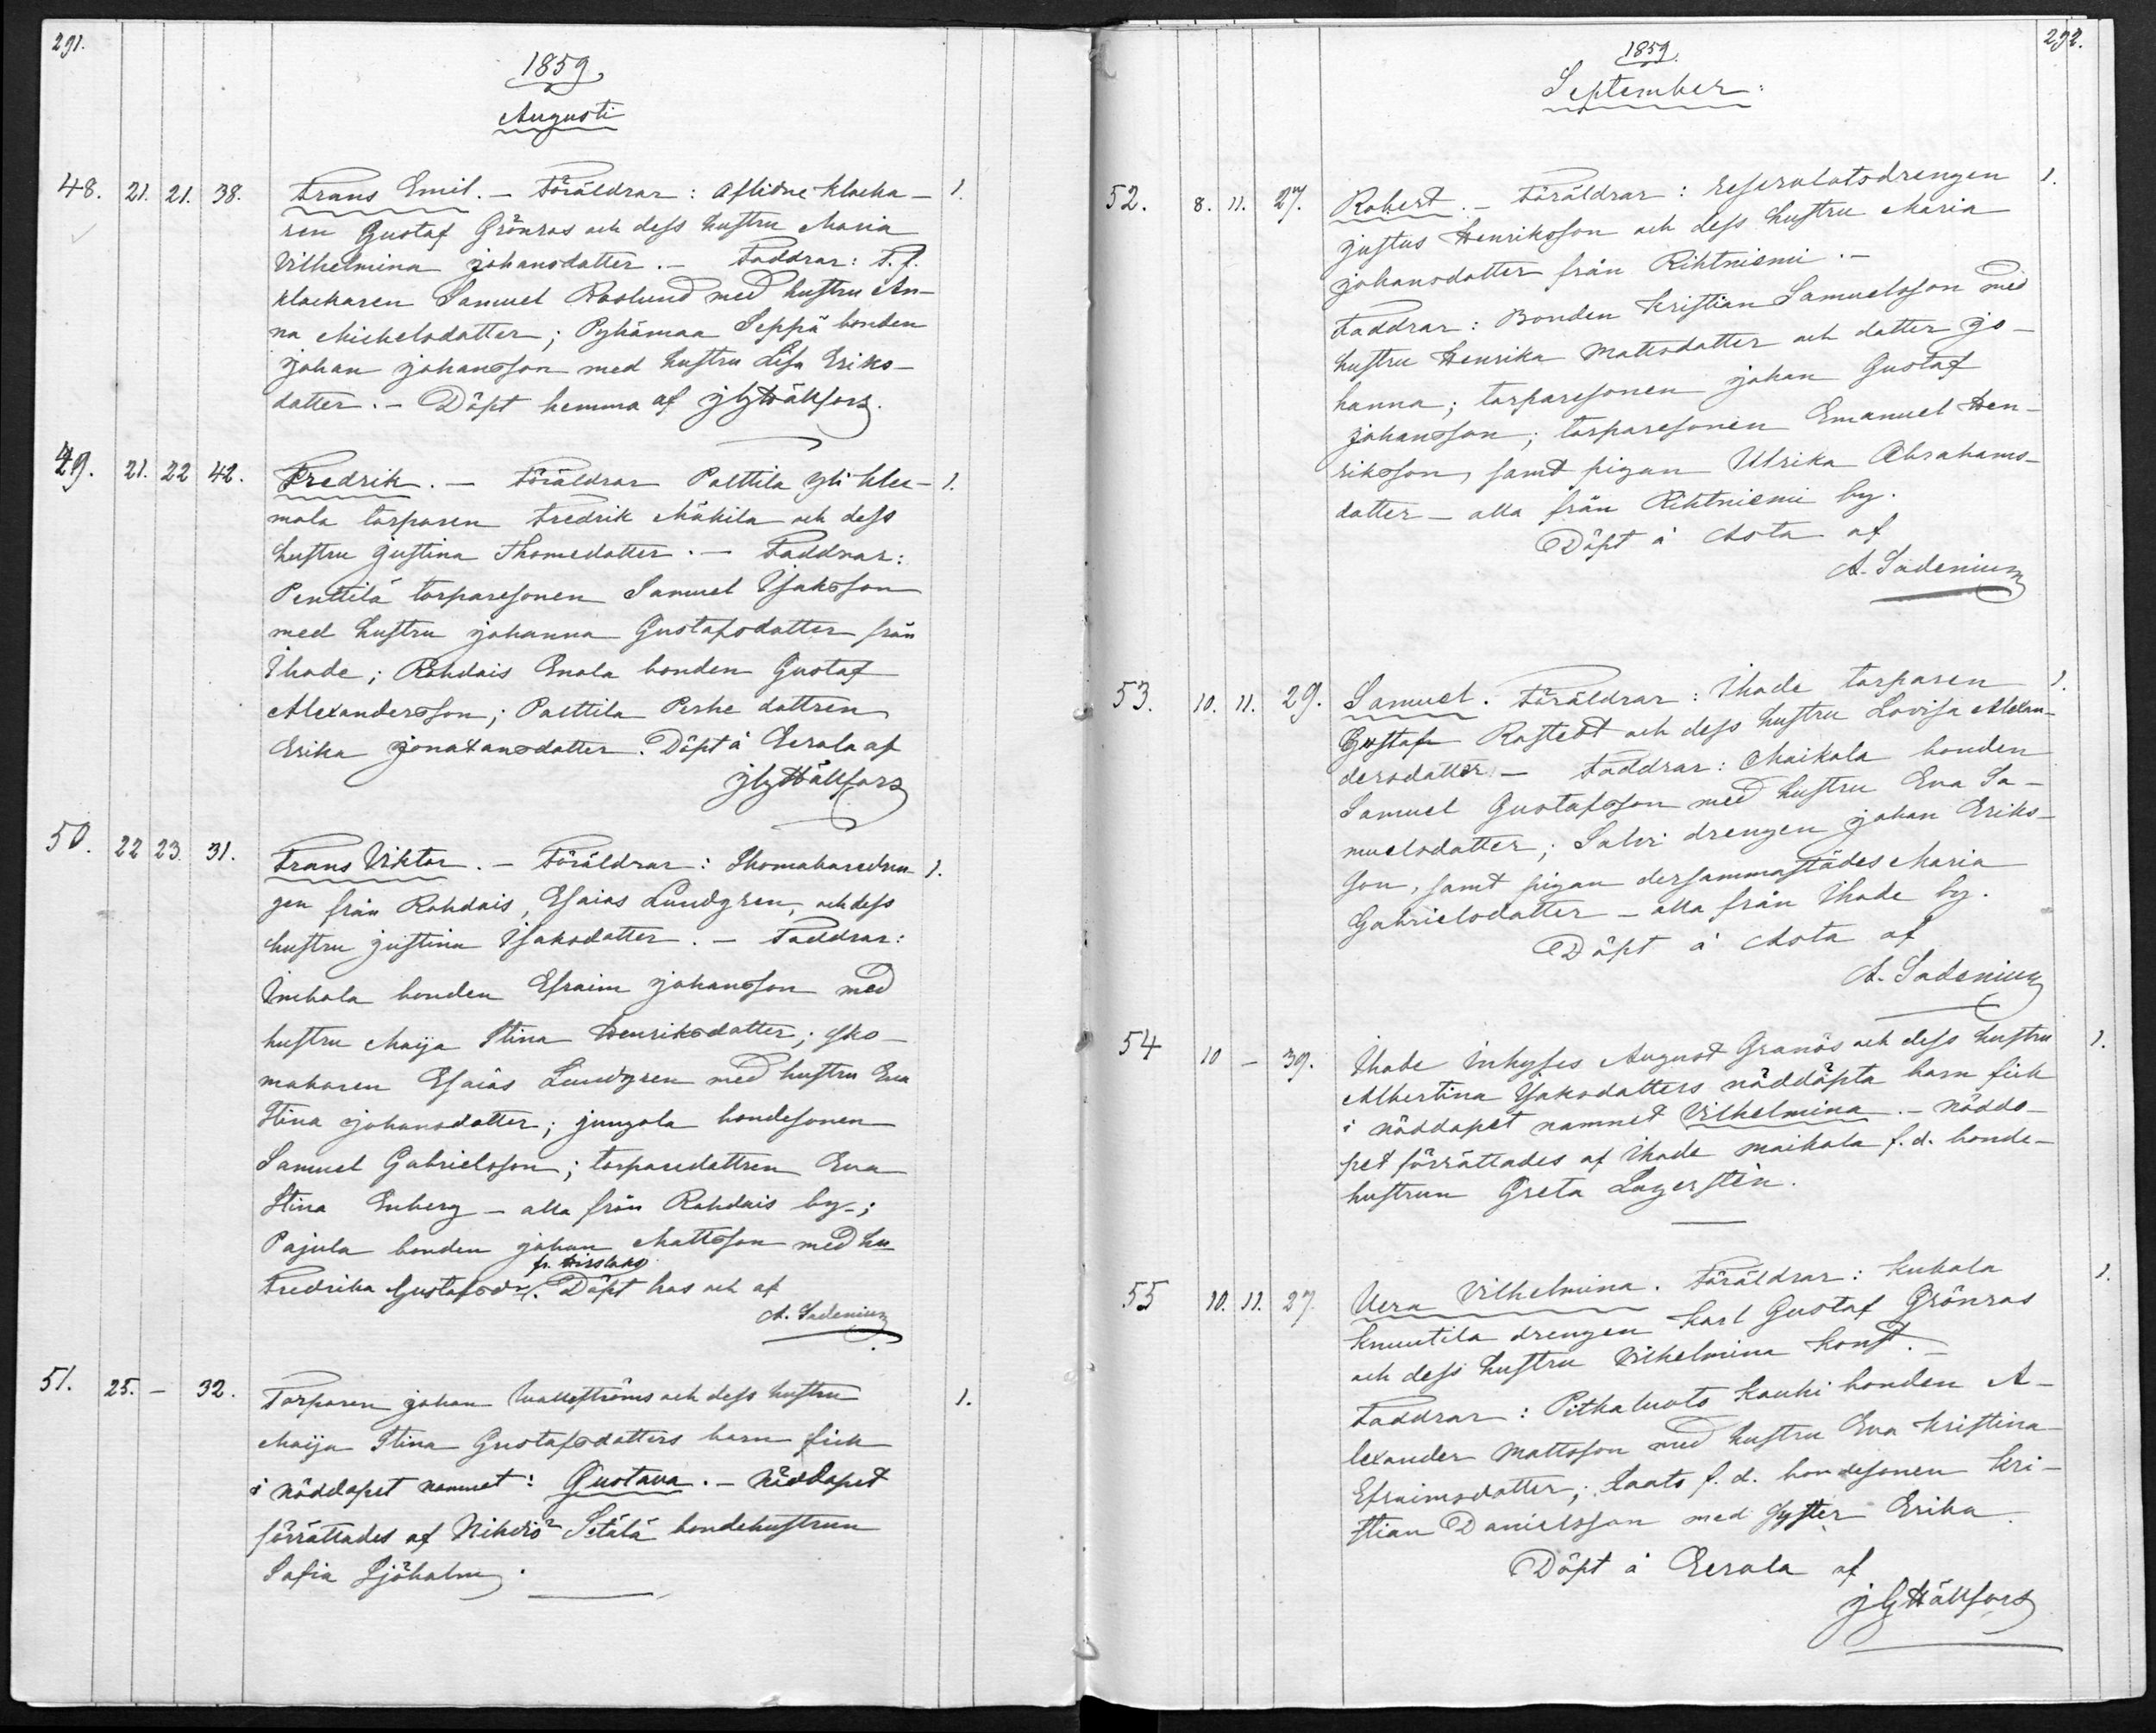 291.
1859.
Augusti
48. 21. 21. 38. Frans Emil. - Föräldrar: Aflidne klocka- 1.
ren Gustaf Grönros och dess hustru Maria
Vilhelmina Johansdatter. - Faddrar: T. f.
klockaren Samuel Roslund med hustru An-
na Michelsdatter; Pyhämaa Seppä bonden
Johan Johansson med hustru Lisa Eriks-
datter. - Döpt hemma af JG Hällfors.
49. 21. 22 42. Fredrik. - Föräldrar Polttila Yli Klee- 1.
mola torparen Fredrik Mäkilä och dess
hustru Justina Thomedotter. - Faddrar:
Penttilä torparesonen Samuel Isaksson
med hustru Johanna Gustafsdotter från
Ihode; Rohdais Enola bonden Gustaf
Alexandersson; Polttila Perhe dottren
Erika Jonatansdotter. Döpt å Eerola af
JG Hällfors
50. 22 23. 31. Frans Viktor. - Föräldrar: Skomakaredren- 1.
gen från Rohdais, Esaias Lundgren, och dess
hustru Justina Isaksdotter. - Faddrar:
Imhola bonden Efraim Johansson med
hustru Maija Stina Henriksdotter; sko-
makaren Esaias Lundgren med hustru Eva
Stina Johansdotter; Junzola bondesonen
Samuel Gabrielsson; torparedottren Eva
Stina Enberg - alla från Rohdais by.;
Pajula bonden Johan Mattsson med hu
fr.
Fredrika Gustafsdr. Döpt hos och af
A. Sadenius
51. 25. - 32. Torparen Johan Wallströms och dess hustru 1.
Maija Stina Gustafsdotters barn fick
i nöddopet namnet: Gustava. - Nöddopet
förrättades af Nihtiö Setälä bondehustrun
Sofia Sjöholm.
292.
1859.
September:
52. 8. 11. 27. Robert. - Föräldrar: Reservlotsdrengen 1.
Justus Henriksson och dess hustru Maria
Johansdotter från Rihtniemi. -
Faddrar: Bonden Kristian Samuelsson med
hustru Henrika Mattsdotter och dotter Jo-
hanna; torparesonen Johan Gustaf
Johansson; torparesonen Emanuel Hen-
riksson, samt pigan Ulrika Abrahams-
dotter - alla från Rihtniemi by.
Döpt å Asta af
A. Sadenius
53. 10. 11. 29. Samuel. Föräldrar: Ihode torparen 1.
Gustaf Rostedt och dess hustru Lovisa Alexan-
dersdotter. - Faddrar: Maikola bonden
Samuel Gustafsson med hustru Eva Sa-
muelsdotter; Salvi drengen Johan Eriks-
son, samt pigan dersammastädes Maria
Gabrielsdotter - alla från Ihode by.
Döpt å Asta af
A. Sadenius
54 10 - 39. Ihode Inhyses August Granös och dess hustru 1.
Albertina Isaksdotters nöddöpta barn fick
i nöddopet namnet Vilhelmina. - Nöddo-
pet förrättades af Ihode Maikola f. d. bonde-
hustrun Greta Lagerstén.
55 10. 11. 27. Vera Vilhelmina. Föräldrar: Kukola 1.
Knuutila drengen Karl Gustaf Grönros
och dess hustru Vilhelmina Konst. -
Faddrar: Pitkaluoto Kauhi bonden A-
lexander Mattsson med hustru Eva Kristina
Efraimsdotter; Laats f. d. bondesonen Kri-
stian Danielsson med syster Erika.
Döpt å Eerola af
JG Hällfors